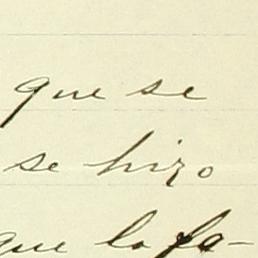 que se
se hizo
que la fa-